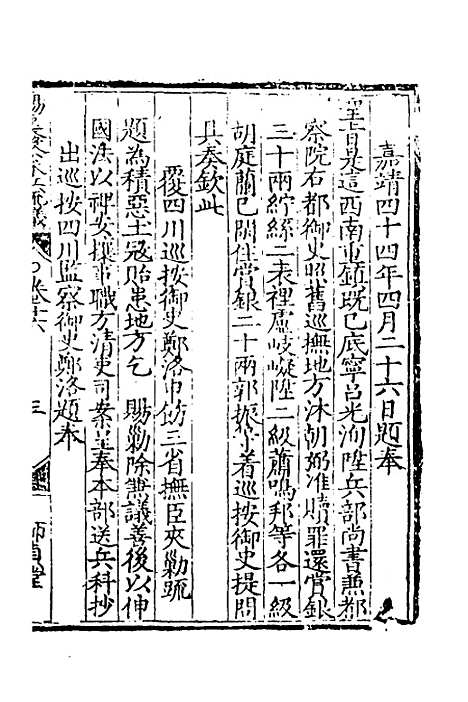 嘉靖四十四年四月二十六日題奉
聖旨是這西南重鎮既已底寧呂光洵陞兵部尚書兼都
察院右都御史照舊巡撫地方沐朝弼准贖罪還賞銀
三十兩紵絲二表裡盧岐嶷陞二級蕭鳴邦等各一級
胡庭蘭已閑住賞銀二十兩郭振等着巡按御史提問
具奏欽此
覆四川巡按御史鄭洛申飭三省撫臣夾勦疏
題為積惡土寇貽患地方乞賜勦除兼議善後以伸
國法以裨安攘事職方清吏司案呈奉本部送兵科抄
出巡按四川監察御史鄭洛題奉
三